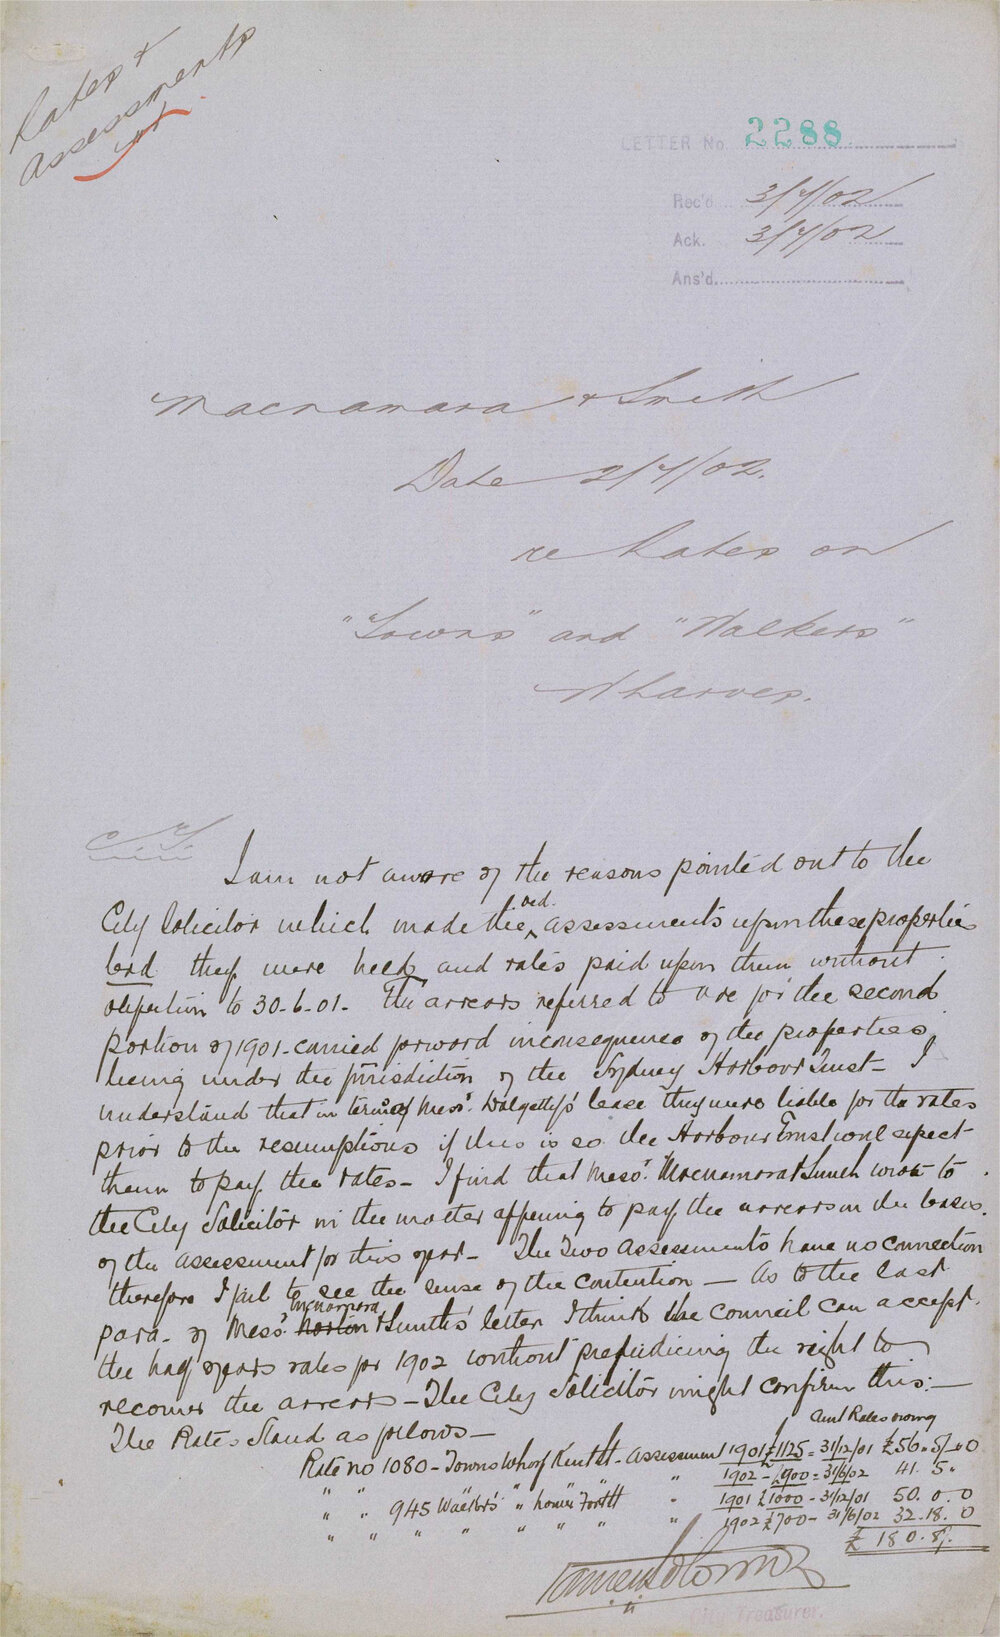 Rates &
Assessments
LETTER No. 2288
Rec'd 3/7/02
Ack. 3/7/02
Ans'd
Macnamara & Smith
Date 2/7/02.
re Rates on
"Towns" and "Walkers"
Wharves.
I am not aware of the reasons pointed out to the
City Solicitor which made the assessments upon these properties
bad they were held and rates paid upon them without
objection to 30-6-01. The arrears referred to are for the second
portion of 1901 - carried forward in consequence of the properties
being under the jurisdiction of the Sydney Harbour Trust - I
understand that in terms of Mess.rs Dalgetty's lease they were liable for the rates
prior to the resumptions if this is so the Harbour Trust will expect
them to pay the rates - I find that Mess.rs Macnamara & Smith wrote to
the City Solicitor in the matter offering to pay the arrears on the basis
of the assessment for this year - The Two Assessments have no connection
therefore I fail to see the sense of the contention - As to the last
para. of Mess.rs Mcnamara & Smith's letter I think the Council can accept
the half years rates for 1902 without prejudicing the right to
recover the arrears - The City Solicitor might confirm this:-
The Rates Stand as follows -
Amt Rates owing
Rate no 1080 - Towns Wharf Kent St - Assessment 1901 £1125 = 31/12/01 £56.5.0
1902 - £900 = 31/6/02 41.5.
" " 945 Walkers' " " 1901 £1000 - 31/12/01 50.0.0
" " " " " " " 1902 £700 - 31/6/02 32.18.0
£180.8/.
City Treasurer.